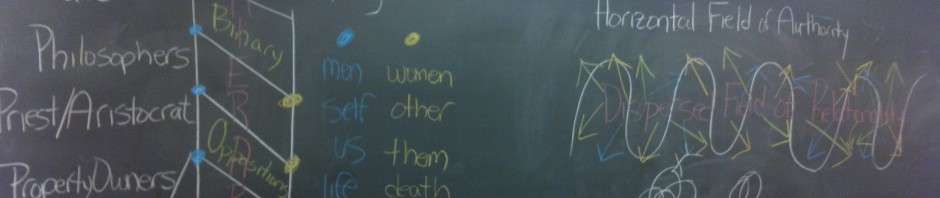 Philosophers
Priest/Aristocrat
PropertyOwners/
Binary
Oppositions
men women
self other
us them
life death
Horizontal Field of Authority
Dispersed Field of Relationality